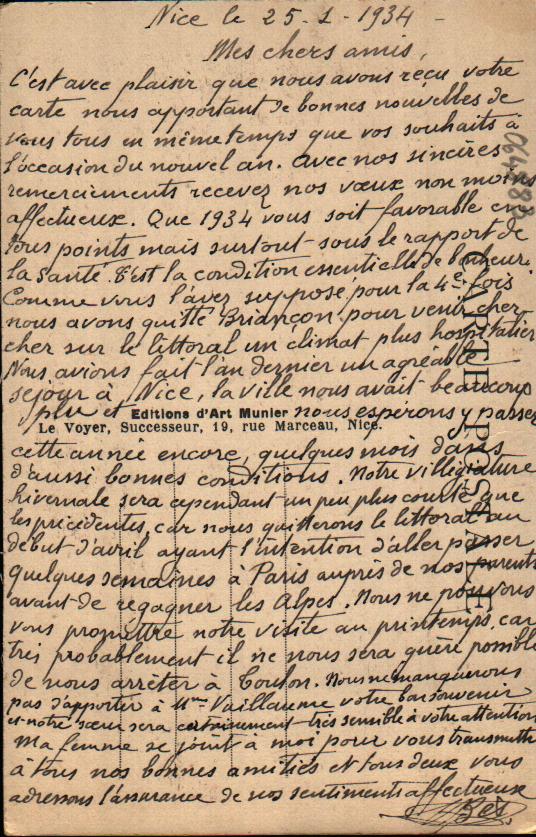 Nice le 25-1-1934-
Mes chers amis,
C'est avec plaisir que nous avons reçu votre
carte nous apportant de bonnes nouvelles de
vous tous en même temps que vos souhaits à
l'occasion du nouvel an. Avec nos sincères
remerciements recevez nos vœux non moins
affectueux. Que 1934 vous soit favorable en
tous points mais surtout sous le rapport de
la santé. C'est la condition essentielle de bonheur.
Comme vous l'avez supposé pour la 4e fois
nous avons quitté Briançon pour venir cher
cher sur le littoral un climat plus hospitalier
Nous avions fait l'an dernier un agréable
séjour à Nice, la ville nous avait beaucoup
plu et nous espérons y passer
Editions d'Art Munier
Le Voyer, Successeur, 19, rue Marceau, Nice.
cette année encore, quelques mois dans
d'aussi bonnes conditions. Notre villégiature
hivernale sera cependant un peu plus courte que
les précédentes, car nous quitterons le littoral au
début d'avril ayant l'intention d'aller passer
quelques semaines à Paris auprès de nos parents
avant de regagner les Alpes. Nous ne pouvons
vous promettre notre visite au printemps, car
très probablement il ne nous sera guère possible
de nous arrêter à Toulon. Nous ne manquerons
pas d'apporter à Mme Vaillaume votre bon souvenir
et notre sœur sera certainement très sensible à votre attention
Ma femme se joint à moi pour vous transmettre
à tous nos bonnes amitiés et tous deux vous
adressons l'assurance de nos sentiments affectueux
Bès
CARTE POSTALE